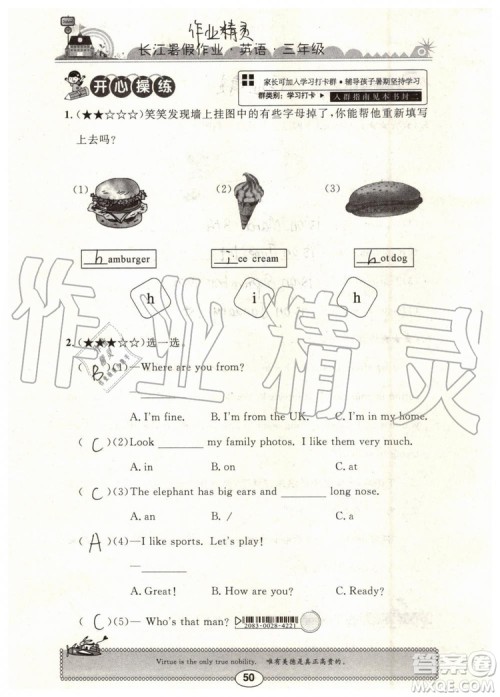 作业精灵
长江暑假作业·英语·三年级
开心操练
家长可加入学习打卡群·辅导孩子暑期坚持学习
群类别：学习打卡 ▶ 入群指南见本书封二
1. (★★☆☆☆)笑笑发现墙上挂图中的有些字母掉了,你能帮他重新填写
上去吗?
(1) (2) (3)
hamburger ice cream hotdog
h i h
2. (★★★☆☆)选一选。
( B )(1)—Where are you from?
—________
A. I'm fine. B. I'm from the UK. C. I'm in my home.
( C )(2)Look ________ my family photos. I like them very much.
A. in B. on C. at
( C )(3)The elephant has big ears and ________ long nose.
A. an B. / C. a
( A )(4)—I like sports. Let's play!
—________
A. Great! B. How are you? C. Ready?
( C )(5)— Who's that man?
2083-0028-4221
Virtue is the only true nobility. 唯有美德是真正高贵的。
50
作业精灵
答案圈
MXQE.COM